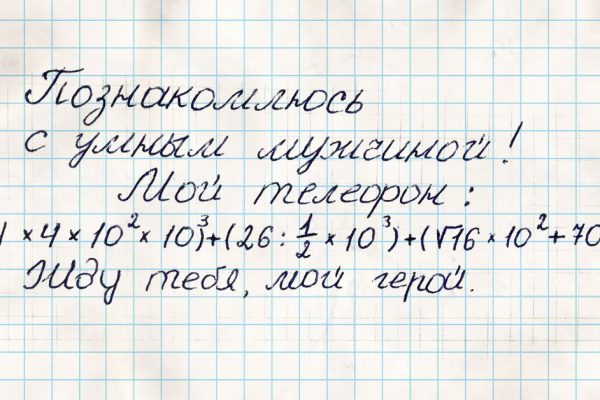 Познакомлюсь
с умным мужчиной!
Мой телефон:
× 4 × 10² × 10³)+(26 : 1/2 × 10³)+(√16 × 10² + 70
Жду тебя, мой герой.